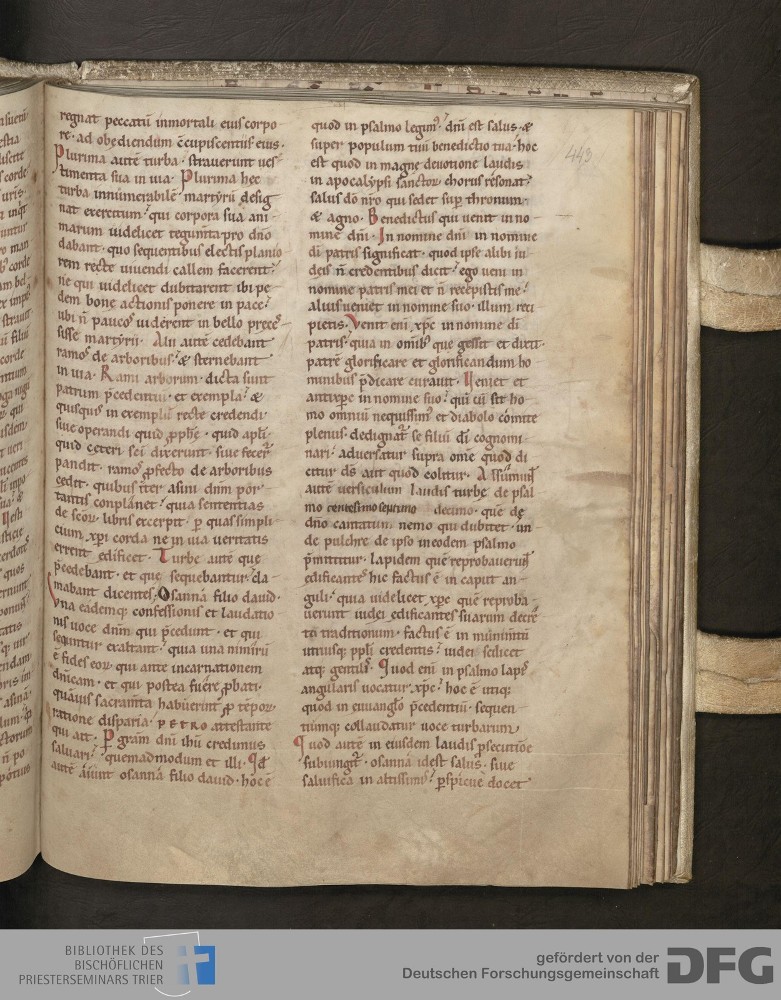 regnat peccatũ inmortali eius corpo
re · ad obędiendum ↄcupiscentiis eius ·
Plurima autẽ turba · strauerunt ues
timenta sua in uia · Plurima hęc
turba innumerabilẽ martyrũ desig
nat exercitum · qui corpora sua ani
marum uidelicet tegumta pro dño
dabant · quo sequentibus electis planio
rem recte uiuendi callem facerent ·
ne qui uidelicet dubitarent ibi pe
dem bonę actionis ponere in pace ·
ubi ñ paucos uiderent in bello prece
sisse martyrii · Alii autẽ cedebant
ramos de arboribus · & sternebant
in uia · Rami arborum · dicta sunt
patrum p̃cedentiũ · et exempla · &
quisquis in exemplũ recte credendi ·
siue operandi quid ꝓphẽ · quid apłi ·
quid ceteri sci dixerunt · siue fecer̃
pandit · ramos ꝓfecto de arboribus
cędit · quibus iter asini dñm por
tantis conplanet · quia sententias
de scoꝝ libris excerpit · ꝑ quas simpli
cium xp̃i corda ne in uia ueritatis
errent ędificet · Turbę autẽ quę
p̃cedebant · et que sequebantur · cla
mabant dicentes · Osanna filio dauid ·
Vna eademq; confessionis et laudatio
nis uoce dñm qui p̃cedunt · et qui
sequntur exaltant · quia una nimirũ
ẽ fides eoꝝ · qui ante incarnationem
dñicam · et qui postea fuere ꝓbati ·
quãuis sacramta habuerint ꝓ tẽpor
ratione disparia · PETRO attestante
qui ait · P grãm dñi ihu credimus
saluari · quemadmodum et illi · Qđ
autẽ aiunt osanna filio dauid · hoc ẽ
quod in psalmo legim᷒ · dñi est salus · &
super populum tuũ benedictio tua · hoc
est quod in magnę deuotione laudis
in apocalypsi sanctoꝝ chorus resonat ·
salus dõ nr̃o qui sedet sup̃ thronum ·
& agno · Benedictus qui uenit in no
mine dñi · In nomine dñi in nomine
di patris significat · quod ipse alibi iu
deis ñ credentibus dicit · ego ueni in
nomine patris mei et ñ recepistis me ·
alius ueniet in nomine suo · illum reci
pietis · Venit eni xp̃c in nomine di
patris · quia in omib᷒ que gessit et dixit ·
patrẽ glorificare et glorificandum ho
minibus p̃dicare curauit · Veniet et
antixp̃c in nomine suo · qui cũ sit ho
mo omniũ nequissim᷒ et diabolo comite
plenus · dedignat᷒ se filiũ di cognomi
nari · aduersatur supra omẽ quod di
citur ds aut quod colitur · Assumũt
autẽ uersiculum laudis turbę de psal
mo centesimo septimo decimo · quẽ de
dño cantatum nemo qui dubitet · un
de pulchre de ipso in eodem psalmo
p̃mittitur · lapidem quẽ reprobauerũt
ędificantes hic factus ẽ in caput an
guli · quia uidelicet xp̃c quẽ reproba
uerunt iudei edificantes suarum decre
ta traditionum · factus ẽ in munimtũ
utriusq; ppłi credentis · iudei scilicet
atq; gentil᷒ · Quod eni in psalmo lapis
angularis uocatur xp̃c · hoc ẽ utiq;
quod in euuanglo p̃cedentiũ · sequen
tiũmq; collaudatur uoce turbarum
Quod autẽ in eiusdem laudis ꝓsecutiõe
subiungit᷒ · osanna idest salus · siue
saluifica in altissimis · ꝑspicue docet
443
BIBLIOTHEK DES
BISCHÖFLICHEN
PRIESTERSEMINARS TRIER
gefördert von der
Deutschen Forschungsgemeinschaft
DFG